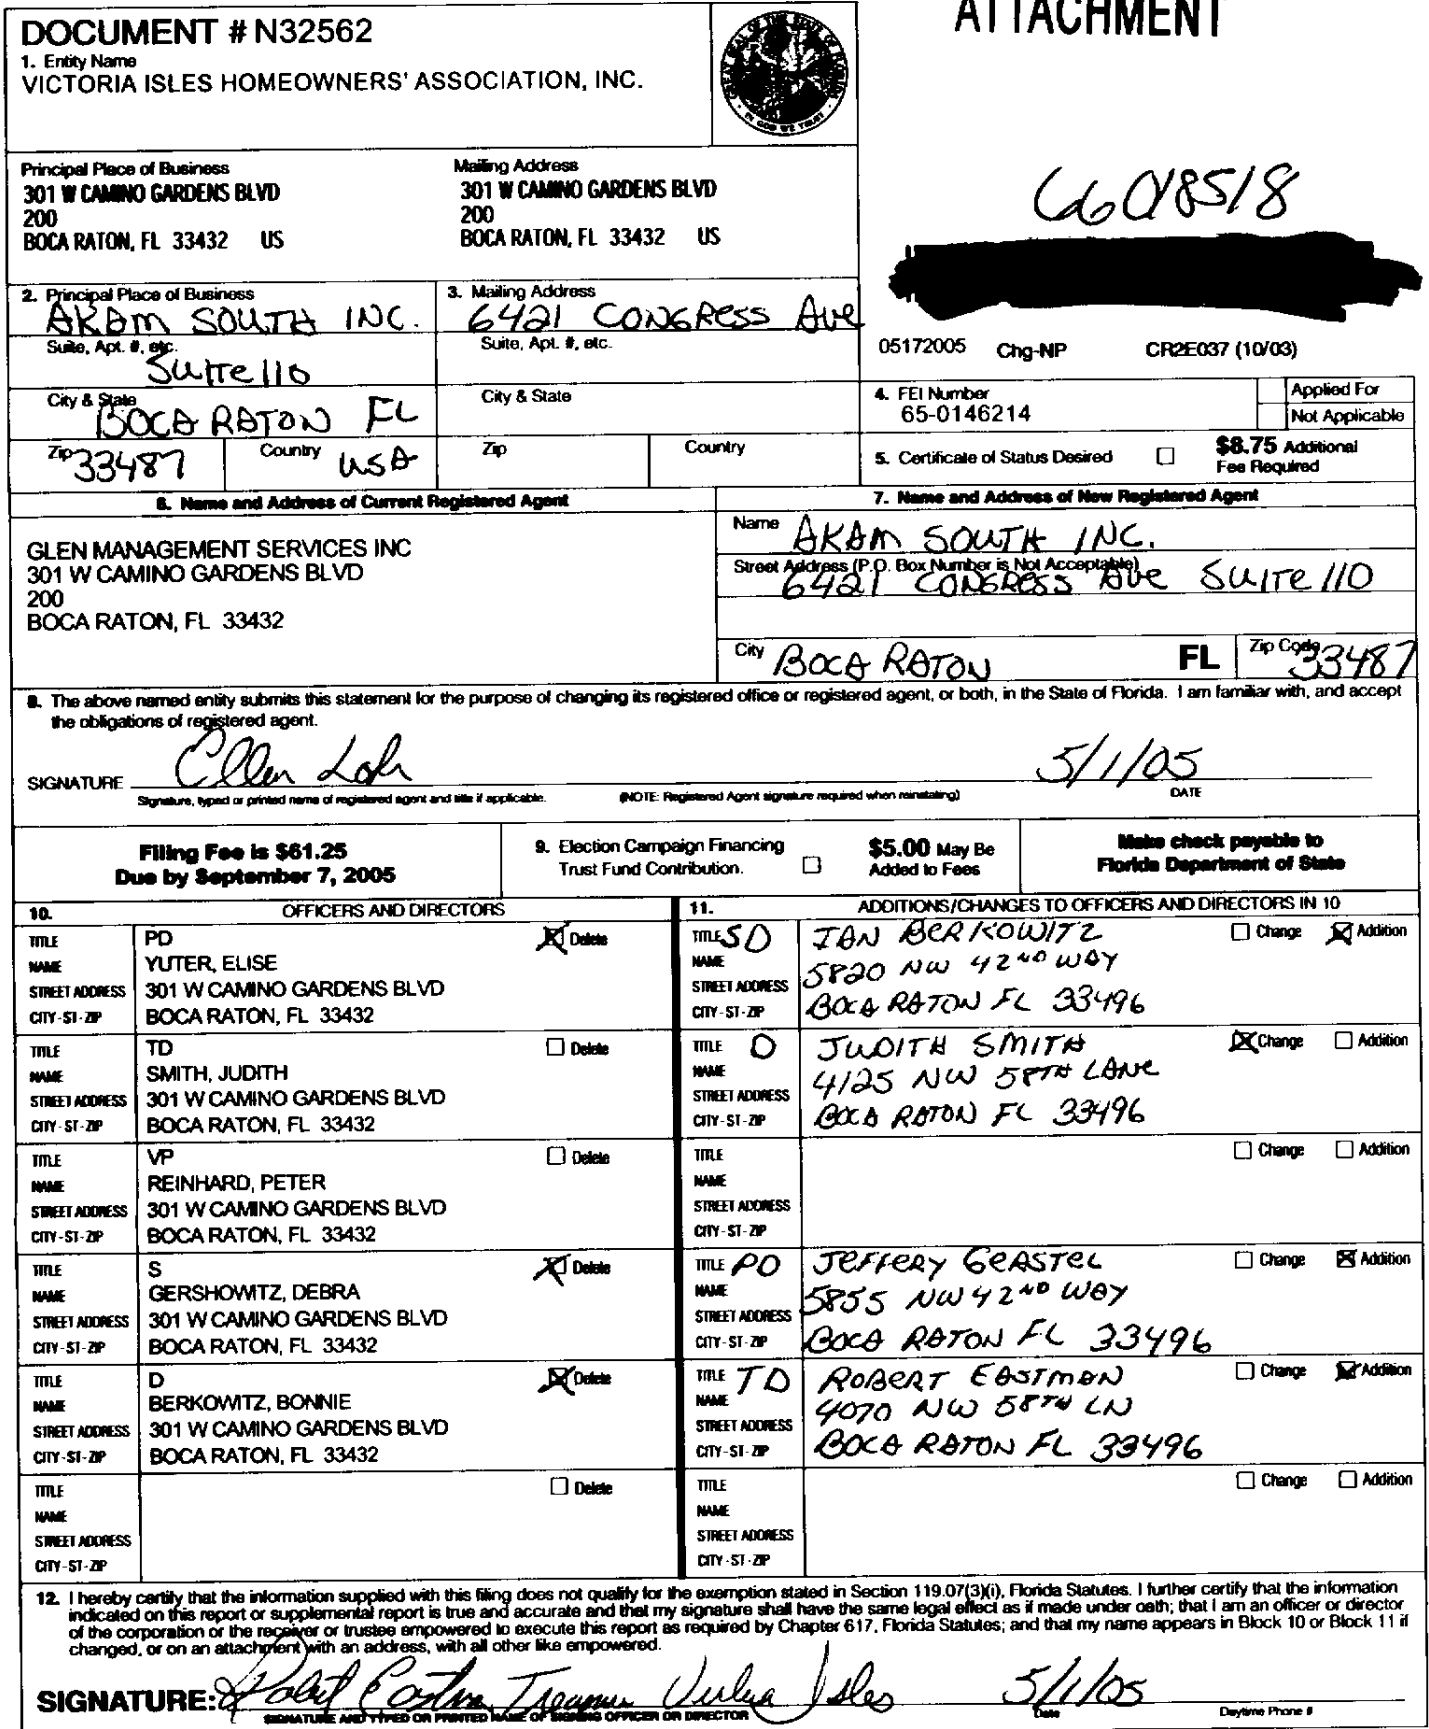 ATTACHMENT
DOCUMENT # N32562
1. Entity Name
VICTORIA ISLES HOMEOWNERS' ASSOCIATION, INC.
Principal Place of Business
301 W CAMINO GARDENS BLVD
200
BOCA RATON, FL 33432 US
Mailing Address
301 W CAMINO GARDENS BLVD
200
BOCA RATON, FL 33432 US
66018518
2. Principal Place of Business
AKAM SOUTH INC.
Suite, Apt. #, etc.
Suite 110
City & State
BOCA RATON FL
Zip 33487 Country USA
3. Mailing Address
6421 CONGRESS Ave
Suite, Apt. #, etc.
City & State
Zip Country
05172005 Chg-NP CR2E037 (10/03)
4. FEI Number
65-0146214
Applied For
Not Applicable
5. Certificate of Status Desired $8.75 Additional
Fee Required
6. Name and Address of Current Registered Agent
GLEN MANAGEMENT SERVICES INC
301 W CAMINO GARDENS BLVD
200
BOCA RATON, FL 33432
7. Name and Address of New Registered Agent
Name AKAM SOUTH INC.
Street Address (P.O. Box Number is Not Acceptable)
6421 CONGRESS Ave Suite 110
City BOCA RATON FL Zip Code 33487
8. The above named entity submits this statement for the purpose of changing its registered office or registered agent, or both, in the State of Florida. I am familiar with, and accept
the obligations of registered agent.
SIGNATURE Ellen 5/1/05
Signature, typed or printed name of registered agent and title if applicable. (NOTE: Registered Agent signature required when reinstating) DATE
Filing Fee is $61.25
Due by September 7, 2005
9. Election Campaign Financing
Trust Fund Contribution.
$5.00 May Be
Added to Fees
Make check payable to
Florida Department of State
10. OFFICERS AND DIRECTORS
TITLE PD Delete
NAME YUTER, ELISE
STREET ADDRESS 301 W CAMINO GARDENS BLVD
CITY-ST-ZIP BOCA RATON, FL 33432
TITLE TD Delete
NAME SMITH, JUDITH
STREET ADDRESS 301 W CAMINO GARDENS BLVD
CITY-ST-ZIP BOCA RATON, FL 33432
TITLE VP Delete
NAME REINHARD, PETER
STREET ADDRESS 301 W CAMINO GARDENS BLVD
CITY-ST-ZIP BOCA RATON, FL 33432
TITLE S Delete
NAME GERSHOWITZ, DEBRA
STREET ADDRESS 301 W CAMINO GARDENS BLVD
CITY-ST-ZIP BOCA RATON, FL 33432
TITLE D Delete
NAME BERKOWITZ, BONNIE
STREET ADDRESS 301 W CAMINO GARDENS BLVD
CITY-ST-ZIP BOCA RATON, FL 33432
TITLE Delete
NAME
STREET ADDRESS
CITY-ST-ZIP
11. ADDITIONS/CHANGES TO OFFICERS AND DIRECTORS IN 10
TITLE SD IAN BERKOWITZ Change Addition
NAME 5820 NW 42ND WAY
STREET ADDRESS
CITY-ST-ZIP BOCA RATON FL 33496
TITLE D JUDITH SMITH Change Addition
NAME 4125 NW 58TH LANE
STREET ADDRESS
CITY-ST-ZIP BOCA RATON FL 33496
TITLE Change Addition
NAME
STREET ADDRESS
CITY-ST-ZIP
TITLE PD JEFFERY GERSTEL Change Addition
NAME 5855 NW 42ND WAY
STREET ADDRESS
CITY-ST-ZIP BOCA RATON FL 33496
TITLE TD ROBERT EASTMAN Change Addition
NAME 4070 NW 58TH LN
STREET ADDRESS
CITY-ST-ZIP BOCA RATON FL 33496
TITLE Change Addition
NAME
STREET ADDRESS
CITY-ST-ZIP
12. I hereby certify that the information supplied with this filing does not qualify for the exemption stated in Section 119.07(3)(i), Florida Statutes. I further certify that the information
indicated on this report or supplemental report is true and accurate and that my signature shall have the same legal effect as if made under oath; that I am an officer or director
of the corporation or the receiver or trustee empowered to execute this report as required by Chapter 617, Florida Statutes; and that my name appears in Block 10 or Block 11 if
changed, or on an attachment with an address, with all other like empowered.
SIGNATURE: Isles 5/1/05
SIGNATURE AND TYPED OR PRINTED NAME OF SIGNING OFFICER OR DIRECTOR Date Daytime Phone #